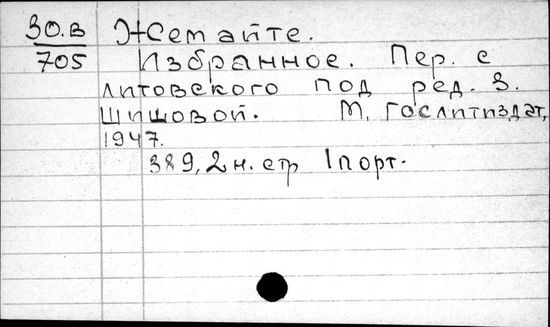 30.В Жемайте.
705 Избранное. Пер. с
литовского под ред. З.
Шишовой. М, Гослитиздат,
1947.
389, 2 н. стр 1 порт.